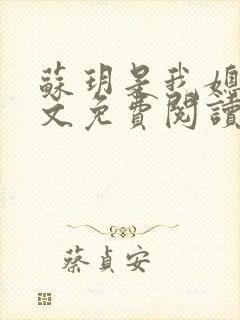 蘇玥是我媳
文免費閱讀
蔡貞安